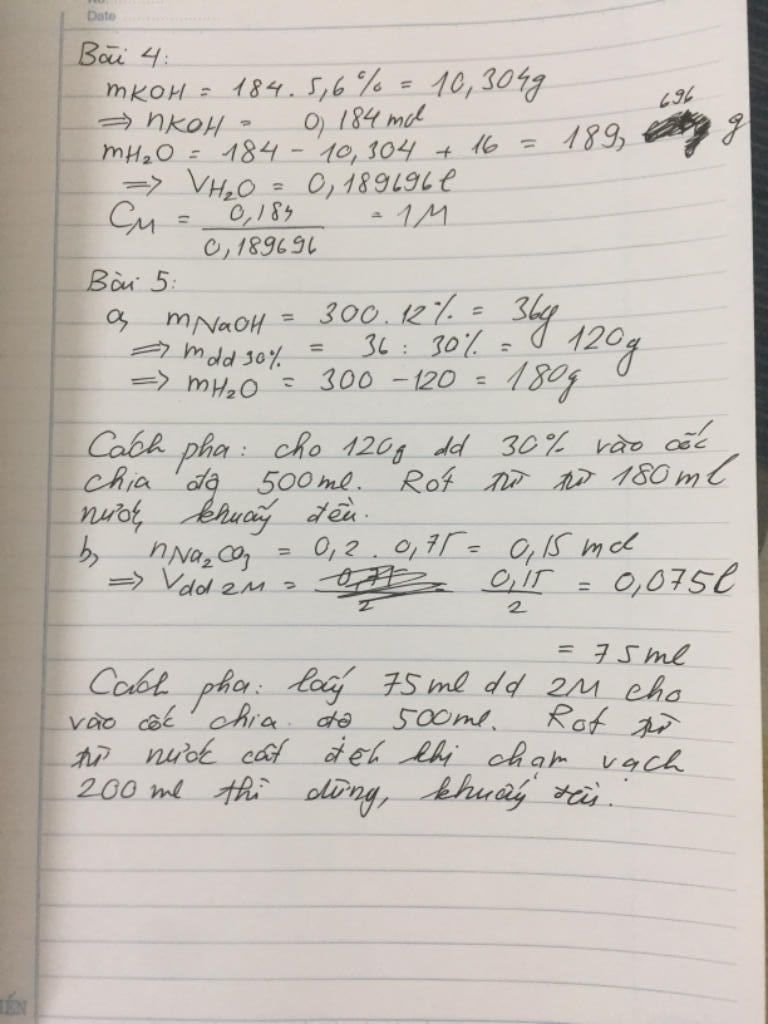 No.
Date
Bài 4:
mKOH = 184 . 5,6% = 10,304g
=> nKOH = 0,184 mol
mH2O = 184 - 10,304 + 16 = 189,696 g
=> VH2O = 0,189696l
CM = 0,184 / 0,189696 = 1M
Bài 5:
a, mNaOH = 300 . 12% = 36g
=> mdd 30% = 36 : 30% = 120g
=> mH2O = 300 - 120 = 180g
Cách pha: cho 120g dd 30% vào cốc
chia độ 500ml. Rót từ từ 180ml
nước, khuấy đều.
b, nNa2CO3 = 0,2 . 0,75 = 0,15 mol
=> Vdd 2M = 0,15 / 2 = 0,075l
= 75ml
Cách pha: lấy 75ml dd 2M cho
vào cốc chia độ 500ml. Rót từ
từ nước cất đến khi chạm vạch
200 ml thì dừng, khuấy đều.